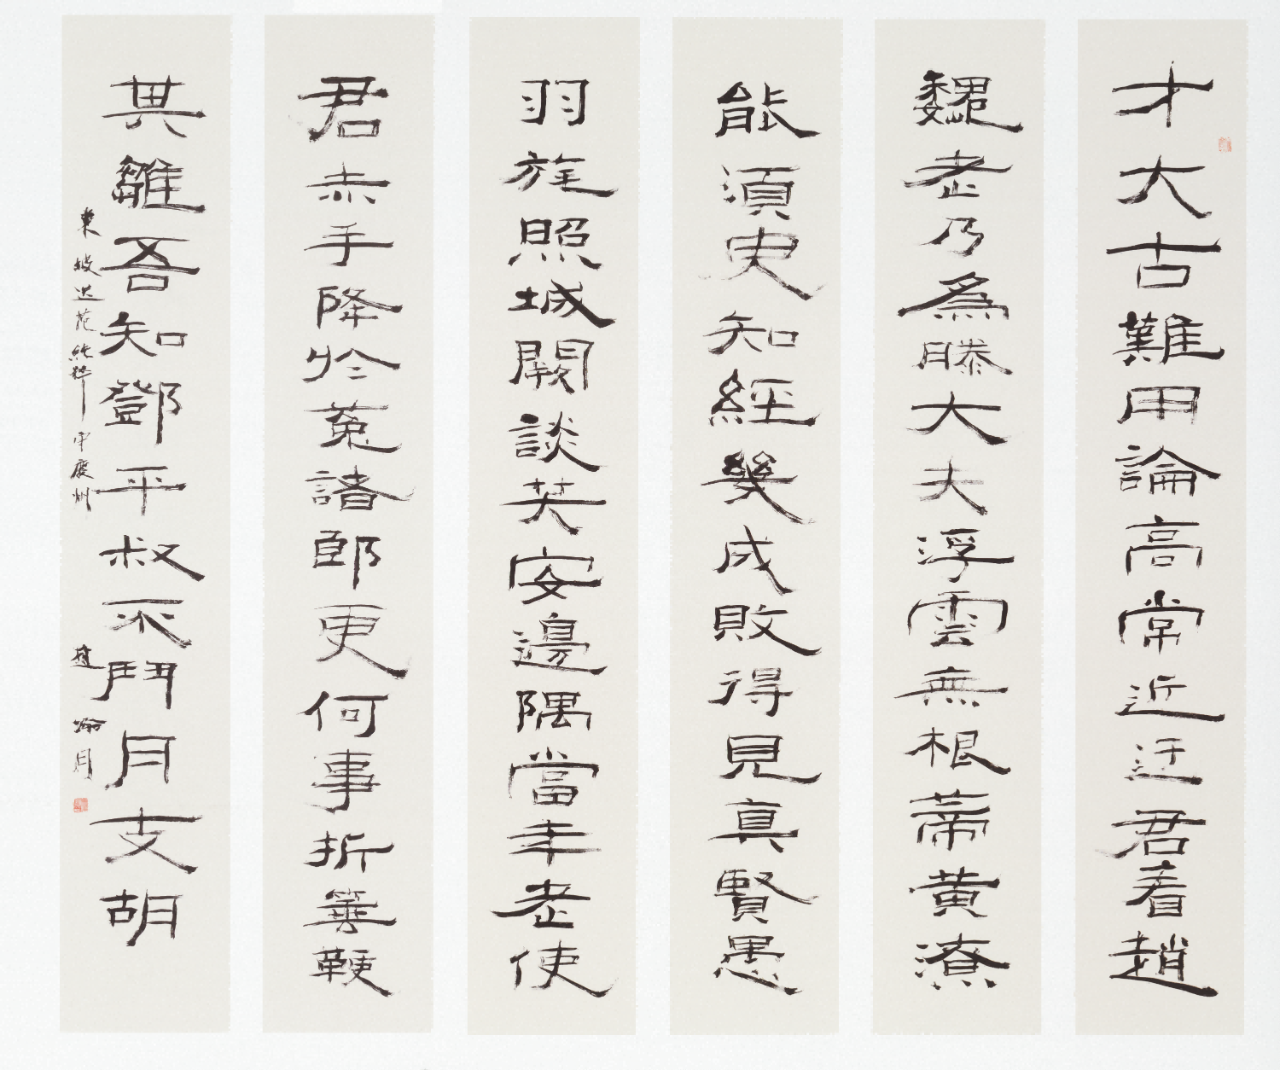 才大古難用論高常近迂君看趙
魏老乃為滕大夫浮雲無根蒂黃潦
能須臾知經幾成敗得見真賢愚
羽旄照城闕談笑安邊隅當年老使
君赤手降於菟諸郎更何事折箠鞭
其雛吾知鄧平叔不鬥月支胡
東坡送范純粹守慶州
趙 月